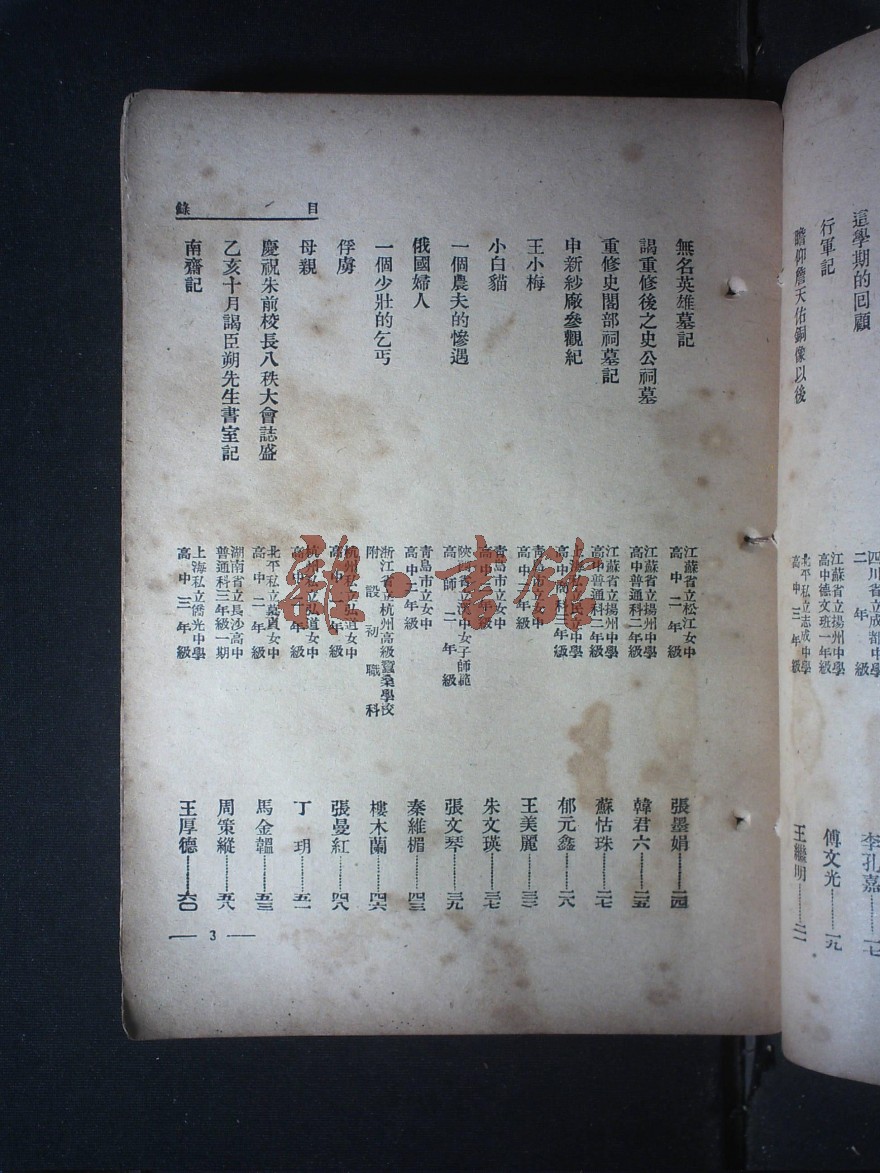 這學期的回顧
四川省立成都中學
二年級
李孔嘉………一七
行軍記
江蘇省立揚州中學
高中德文班一年級
傅文光………一九
瞻仰詹天佑銅像以後
北平私立志成中學
高中三年級
王繼明………二一
目錄
無名英雄墓記
江蘇省立松江女中
高中二年級
張墨娟………二四
謁重修後之史公祠墓
江蘇省立揚州中學
高中普通科二年級
韓君六………二五
重修史閣部祠墓記
江蘇省立揚州中學
高中普通科二年級
蘇怙珠………二七
申新紗廠參觀紀
上海私立民立中學
高中商科二年級
郁元鑫………二八
王小梅
青島市立女中
高中二年級
王美麗………三三
小白貓
青島市立女中
高中二年級
朱文瑛………三七
一個農夫的慘遇
陝西省立漢中女子師範
高師二年級
張文琴………三九
俄國婦人
青島市立女中
高中一年級
秦維楣………四三
一個少壯的乞丐
浙江省立杭州高級蠶桑學校
附設初職科
樓木蘭………四六
俘虜
杭州私立弘道女中
高中二年級
張曼紅………四八
母親
杭州私立弘道女中
高中二年級
丁玥………五一
慶祝朱前校長八秩大會誌盛
北平私立慕貞女中
高中二年級
馬金韞………五三
乙亥十月謁臣朔先生書室記
湖南省立長沙高中
普通科三年級一期
周策縱………五八
南齋記
上海私立僑光中學
高中三年級
王厚德………六〇
— 3 —
雜·書館